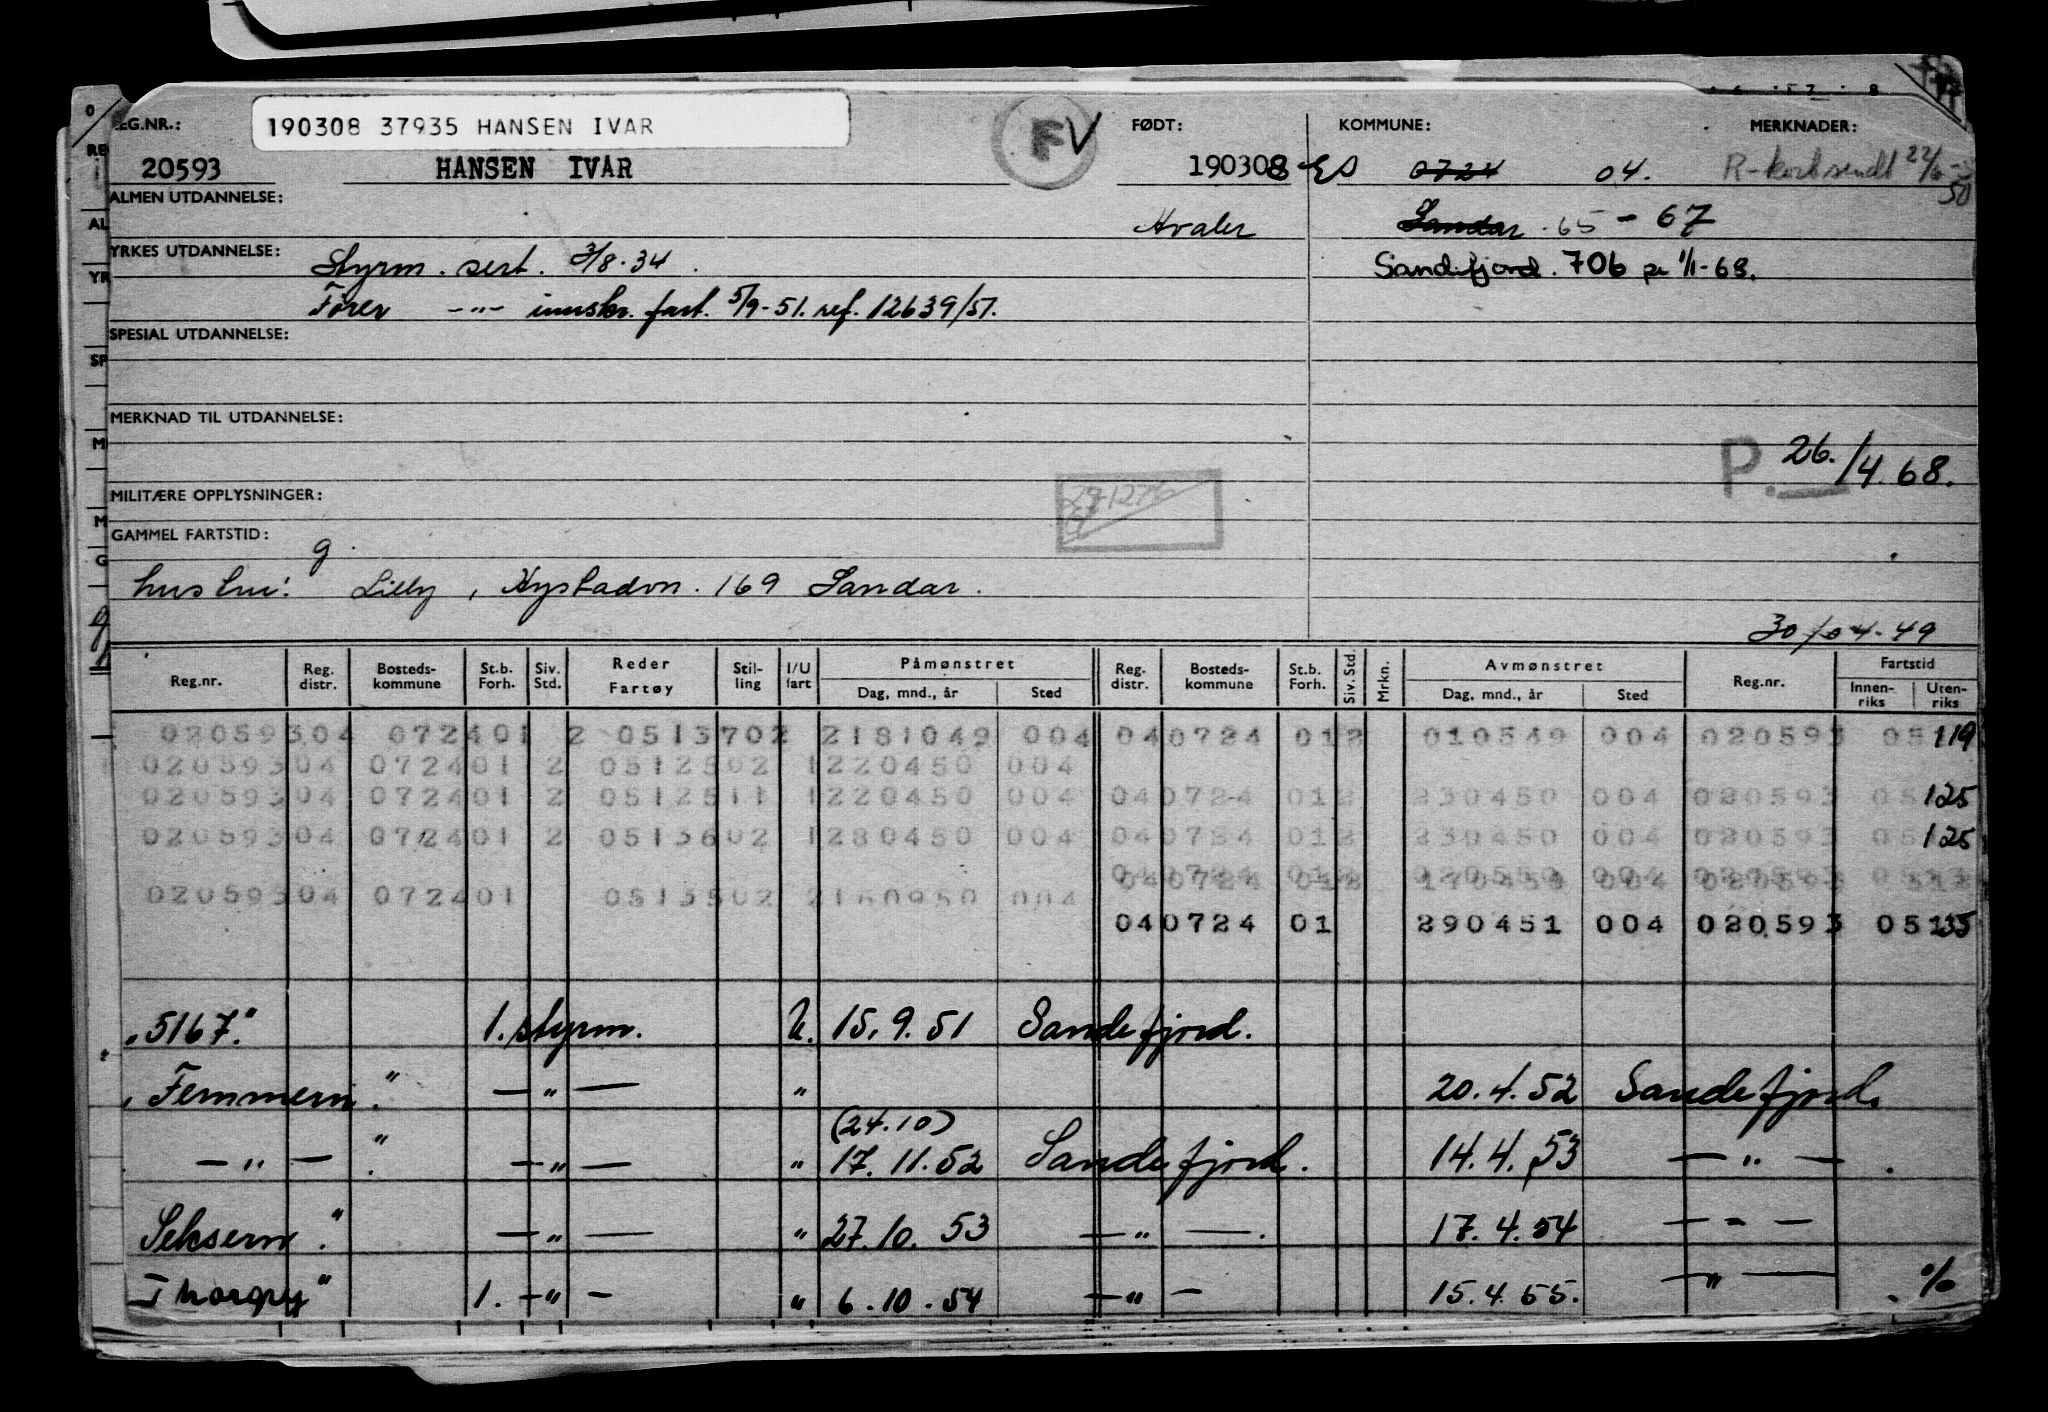 190308 37935 HANSEN IVAR
REG.NR.: FØDT: KOMMUNE: MERKNADER:
20593 HANSEN IVAR FV 190308 0724 04. R-kort sendt 22/6-50
ALMEN UTDANNELSE: Hvaler Sandar 65-67
YRKES UTDANNELSE: Styrm. sert. 3/8-34. Sandefjord. 706 pr 1/1-68.
Fører -"- innskr. fart. 5/9-51. ref. 12639/51.
SPESIAL UTDANNELSE:
MERKNAD TIL UTDANNELSE:
P. 26./4.68.
MILITÆRE OPPLYSNINGER:
GAMMEL FARTSTID: g
hustru: Lilly, Nystadvn. 169 Sandar.
30/04-49
Reg.nr. Reg. distr. Bosteds-kommune St.b. Forh. Siv. Std. Reder Fartøy Stil-ling I/U fart Påmønstret Dag, mnd., år Sted Reg. distr. Bosteds-kommune St.b. Forh. Siv. Std. Mrkn. Avmønstret Dag, mnd., år Sted Reg.nr. Fartstid Innen-riks Uten-riks
02059304 072401 2 0513702 2181049 004 040724 012 010549 004 020593 05 119
02059304 072401 2 0512502 1220450 004
02059304 072401 2 0512511 1220450 004 040724 012 230450 004 020593 05 125
02059304 072401 2 0513602 1280450 004 040724 012 230450 004 020593 05 125
02059304 072401 0513502 2160950 004
040724 01 290451 004 020593 05 135
"5167." 1. styrm. U. 15.9.51 Sandefjord.
"Femmern". -"- " 20.4.52 Sandefjord.
(24.10)
-"- ". -"- " 17.11.52 Sandefjord. 14.4.53 -"- .
Seksern". -"- " 27.10.53 -"- . 17.4.54 -"-
Thorøy" 1. -"- " 6.10.54 -"- 15.4.55. -"- . %